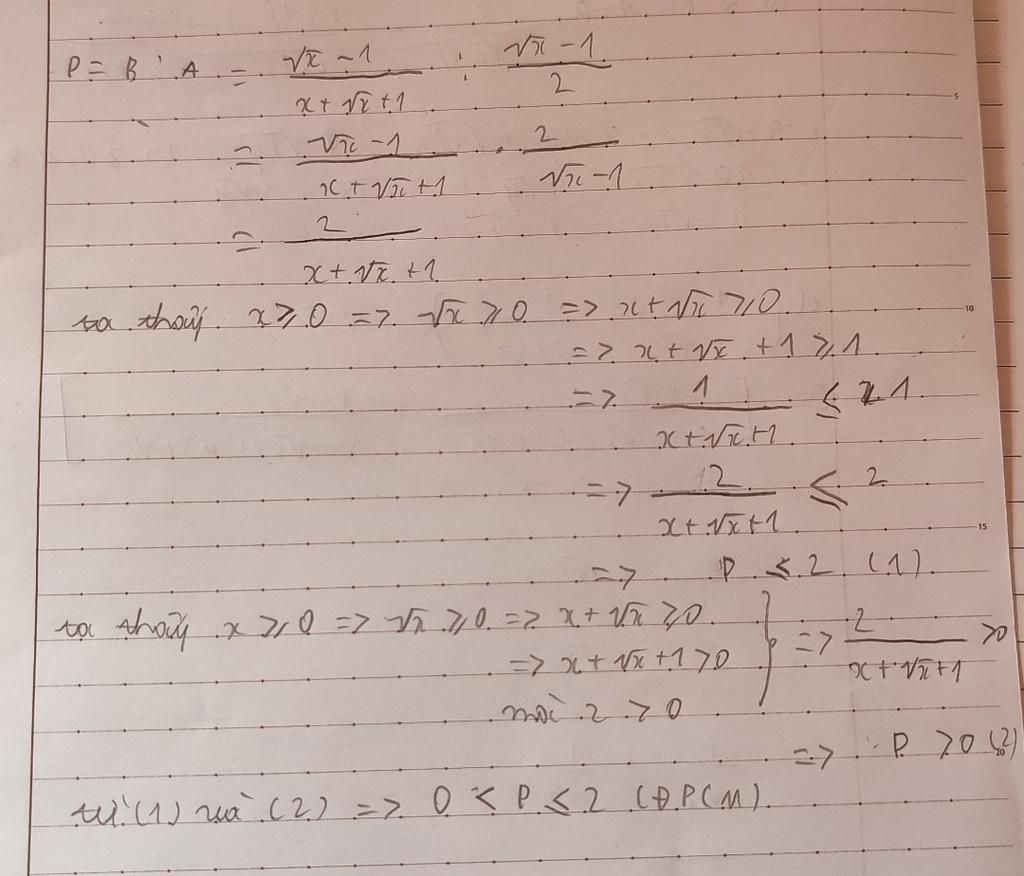 P = B : A = (√x - 1)/(x + √x + 1) : (√x - 1)/2
= (√x - 1)/(x + √x + 1) . 2/(√x - 1)
= 2/(x + √x + 1)
ta thấy x ≥ 0 => √x ≥ 0 => x + √x ≥ 0
=> x + √x + 1 ≥ 1
=> 1/(x + √x + 1) ≤ 1
=> 2/(x + √x + 1) ≤ 2
=> P ≤ 2 (1)
ta thấy x ≥ 0 => √x ≥ 0 => x + √x ≥ 0
=> x + √x + 1 > 0 } => 2/(x + √x + 1) > 0
mà 2 > 0
=> P > 0 (2)
từ (1) và (2) => 0 < P ≤ 2 (ĐPCM)
5
10
15
20